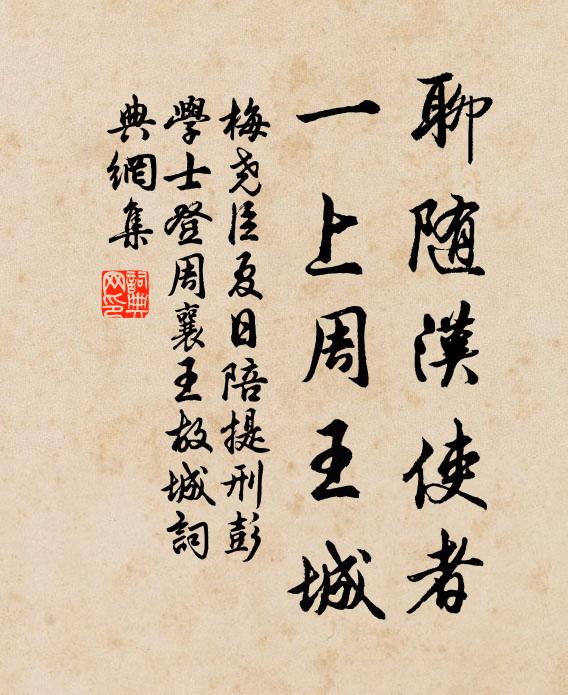 聊随漢使者
一上周王城
梅尧臣夏日陪提刑彭
學士登周襄王故城詞
典網集
詞典
网印